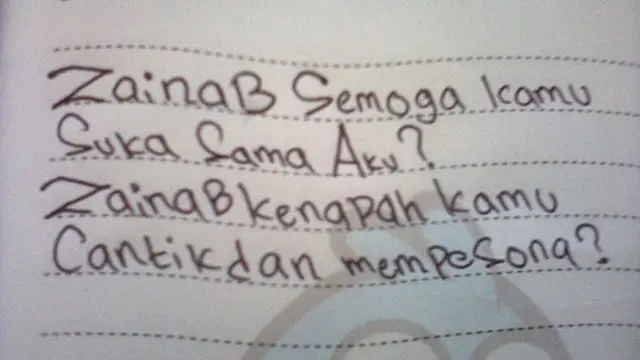 ZainaB Semoga kamu
Suka Sama Aku?
ZainaB kenapah kamu
Cantik dan mempesona?